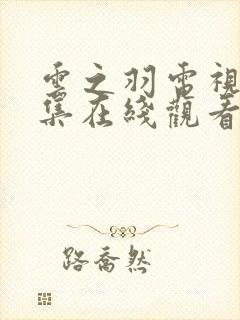 雲之羽電視
集在綫觀看
路喬然